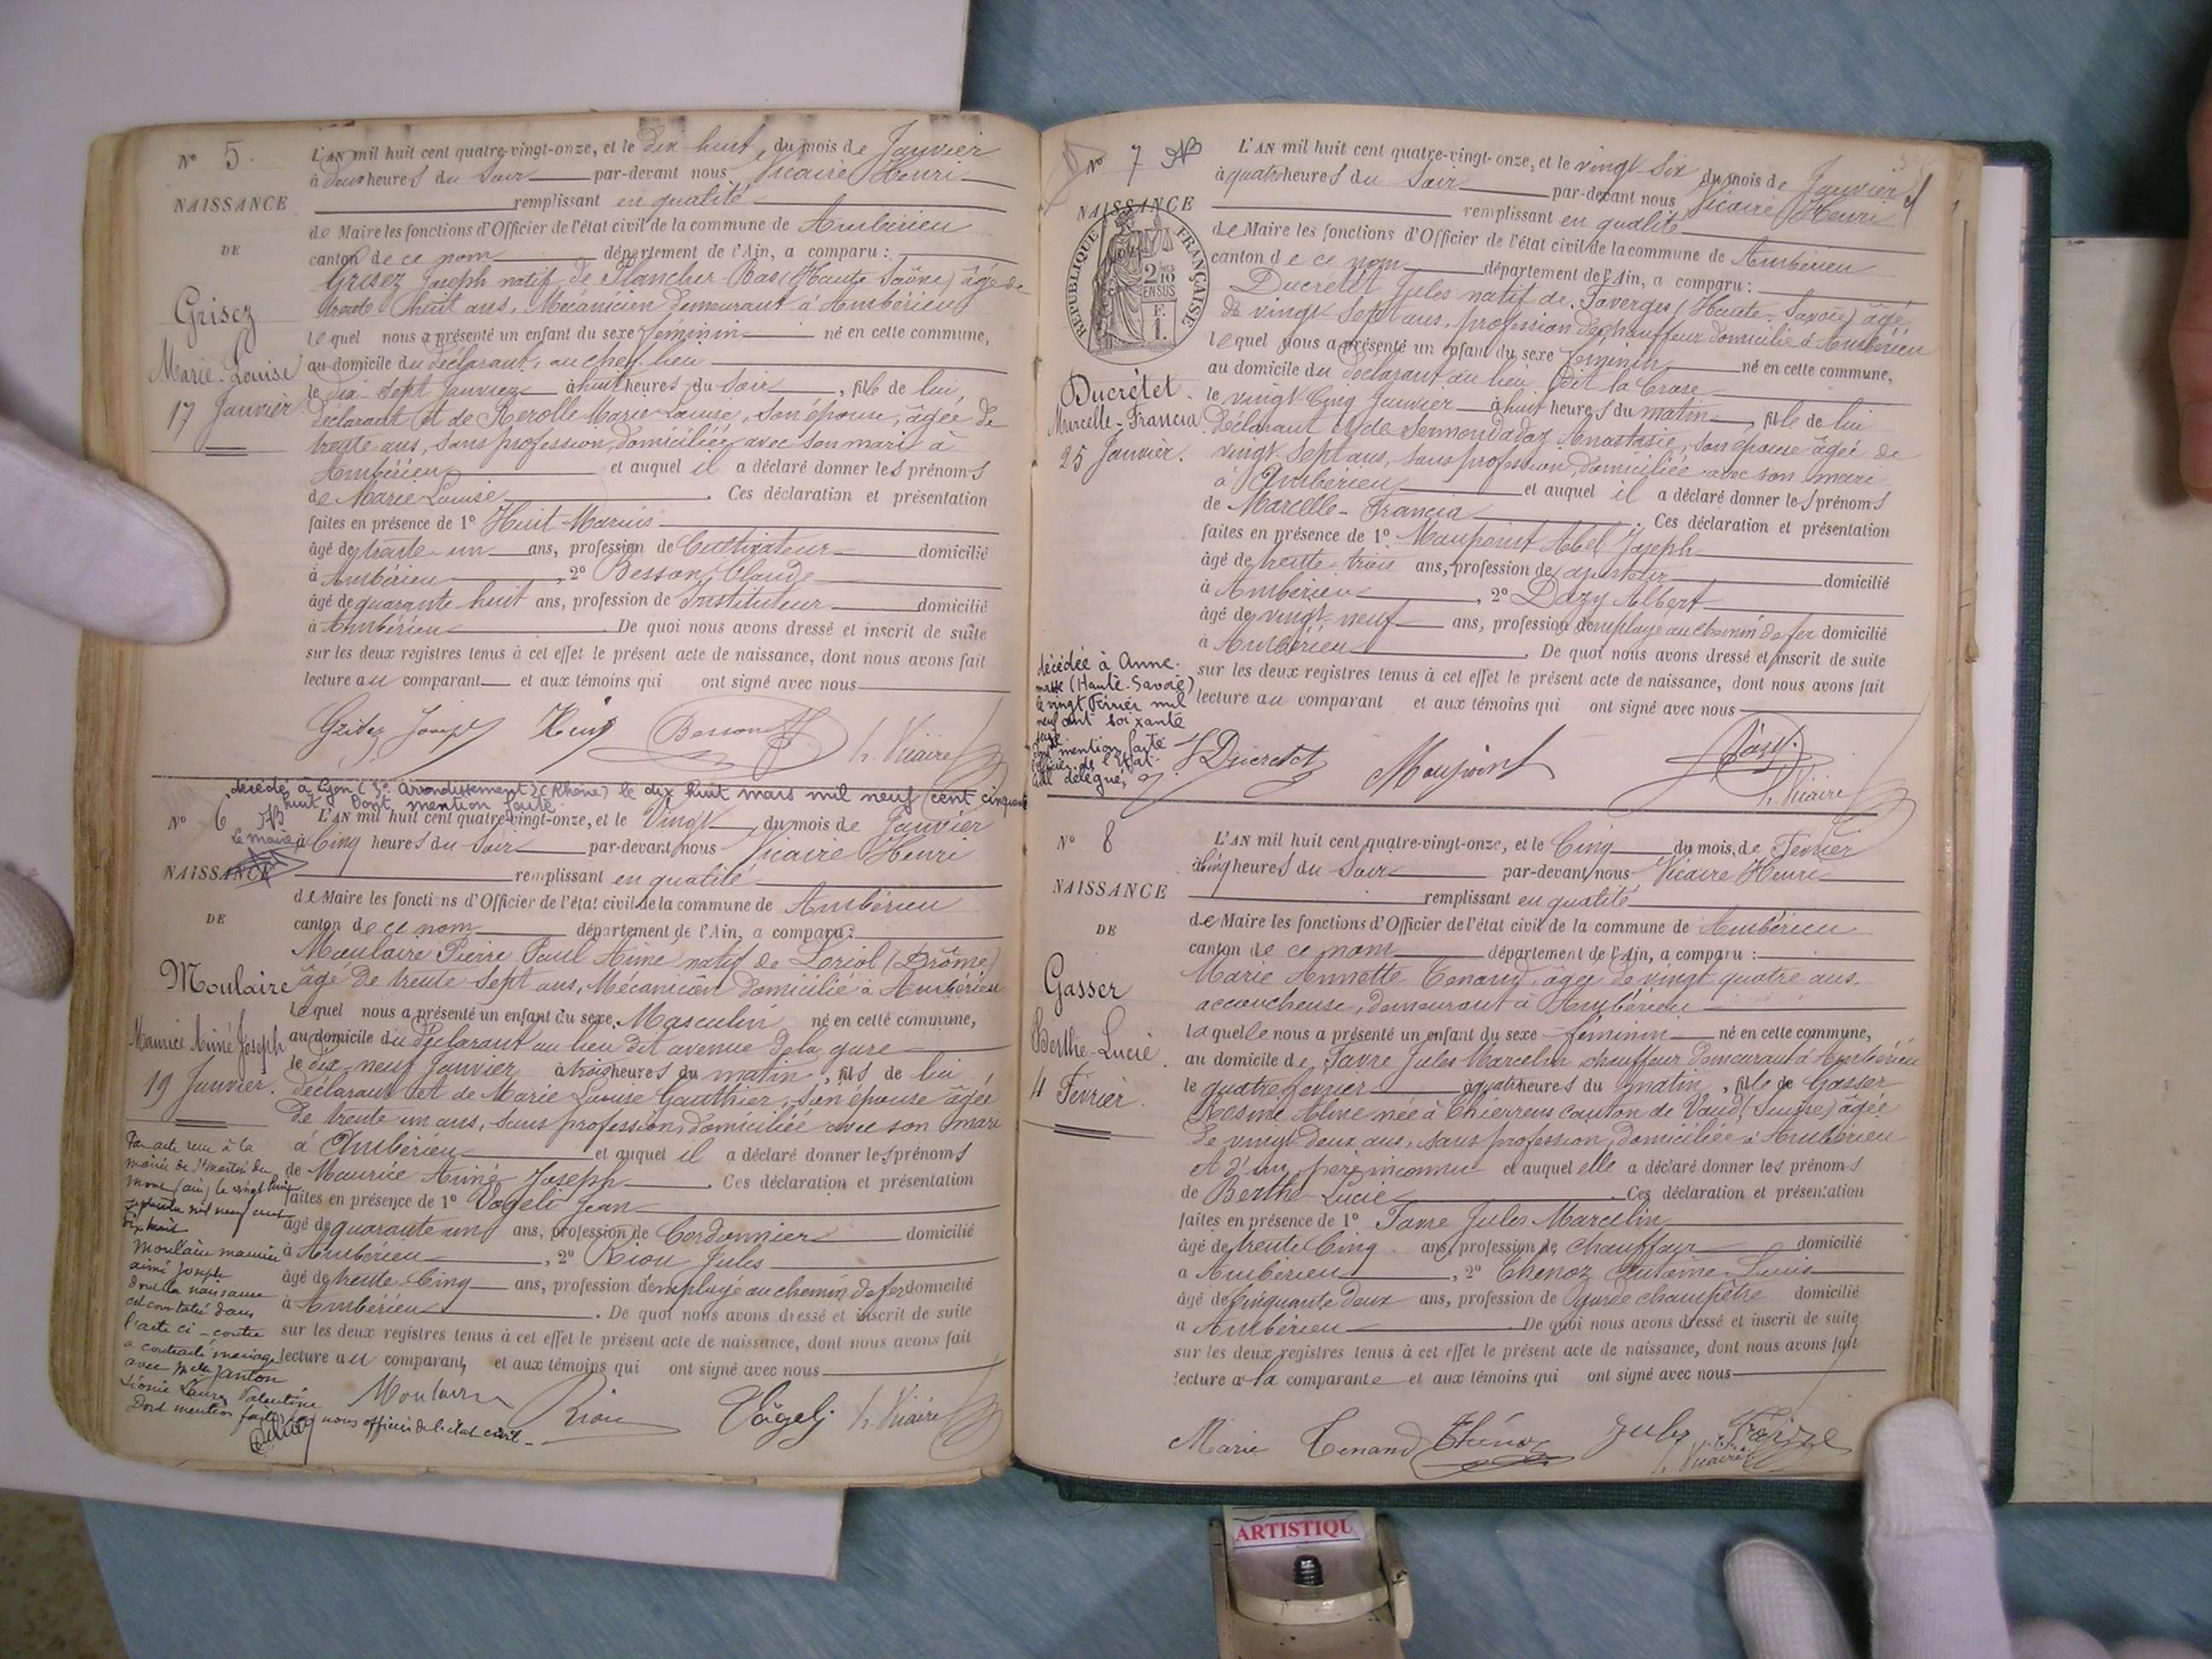 N° 5.
NAISSANCE
DE
Grisez
Marie-Louise
17 Janvier
L'AN mil huit cent quatre-vingt-onze, et le dix-huit du mois de Janvier
à deux heures du soir par-devant nous Vicaire Henri
remplissant en qualité
de Maire les fonctions d'Officier de l'état civil de la commune de Ambérieu
canton de ce nom département de l'Ain, a comparu :
Grisez Joseph natif de Plancher-Bas (Haute Saône) âgé de
trente huit ans, Mécanicien demeurant à Ambérieu
lequel nous a présenté un enfant du sexe féminin né en cette commune,
au domicile du déclarant, au chef-lieu
le dix-sept Janvier à huit heures du soir, fille de lui,
déclarant et de Rerolle Marie-Louise, son épouse, âgée de
trente ans, sans profession, domiciliée avec son mari à
Ambérieu et auquel il a déclaré donner les prénoms
de Marie Louise. Ces déclaration et présentation
faites en présence de 1° Huit Marius
âgé de trente-un ans, profession de Cultivateur domicilié
à Ambérieu, 2° Besson Claude
âgé de quarante huit ans, profession de Instituteur domicilié
à Ambérieu. De quoi nous avons dressé et inscrit de suite
sur les deux registres tenus à cet effet le présent acte de naissance, dont nous avons fait
lecture au comparant et aux témoins qui ont signé avec nous
Grisez Joseph Huit Besson h. Vicaire
décédé à Lyon (5e arrondissement) (Rhône) le dix huit mars mil neuf cent cinquante
huit. Dont mention faite.
Le maire,
N° 6
NAISSANCE
DE
Moulaire
Maurice Aimé Joseph
19 Janvier.
L'AN mil huit cent quatre-vingt-onze, et le Vingt du mois de Janvier
à Cinq heures du soir par-devant nous Vicaire Henri
remplissant en qualité
de Maire les fonctions d'Officier de l'état civil de la commune de Ambérieu
canton de ce nom département de l'Ain, a comparu :
Moulaire Pierre Paul Aimé natif de Loriol (Drôme)
âgé de trente sept ans, Mécanicien domicilié à Ambérieu
lequel nous a présenté un enfant du sexe Masculin né en cette commune,
au domicile du Déclarant au lieu dit avenue de la gare
le dix-neuf Janvier à trois heures du matin, fils de lui,
déclarant et de Marie Louise Gauthier, son épouse âgée
de trente un ans, sans profession, domiciliée avec son mari
à Ambérieu et auquel il a déclaré donner les prénoms
de Maurice Aimé Joseph. Ces déclaration et présentation
faites en présence de 1° Vögeli Jean
âgé de quarante un ans, profession de Cordonnier domicilié
à Ambérieu, 2° Riou Jules
âgé de trente-Cinq ans, profession d'employé au chemin de fer domicilié
à Ambérieu. De quoi nous avons dressé et inscrit de suite
sur les deux registres tenus à cet effet le présent acte de naissance, dont nous avons fait
lecture au comparant, et aux témoins qui ont signé avec nous
Moulaire Riou Vögeli h. Vicaire
Par acte reçu à la
mairie de St Martin du
mont (ain) le vingt huit
septembre mil neuf cent
dix huit
Moulaire maurice
aimé Joseph
dont la naissance
est constatée dans
l'acte ci-contre
a contracté mariage
avec Melle Janton
Léonie Laure Valentine
Dont mention faite par nous officier de l'état civil.
N° 7
NAISSANCE
RÉPUBLIQUE FRANÇAISE
2/10 EN SUS
Ducretet
Marcelle-Francia
25 Janvier.
L'AN mil huit cent quatre-vingt-onze, et le vingt six du mois de Janvier
à quatre heures du soir par-devant nous Vicaire Henri
remplissant en qualité
de Maire les fonctions d'Officier de l'état civil de la commune de Ambérieu
canton de ce nom département de l'Ain, a comparu :
Ducretet Jules natif de Faverges (Haute-Savoie) âgé
de vingt sept ans, profession de chauffeur domicilié à Ambérieu
lequel nous a présenté un enfant du sexe féminin né en cette commune,
au domicile du déclarant au lieu dit la Crase
le vingt Cinq Janvier à huit heures du matin, fille de lui
déclarant et de Sermondadaz Anastasie, son épouse âgée de
vingt-sept ans, sans profession, domiciliée avec son mari
à Ambérieu et auquel il a déclaré donner les prénoms
de Marcelle-Francia. Ces déclaration et présentation
faites en présence de 1° Maupoint Abel Joseph
âgé de trente trois ans, profession de ajusteur domicilié
à Ambérieu, 2° Dazy Albert
âgé de vingt-neuf ans, profession d'employé au chemin de fer domicilié
à Ambérieu. De quoi nous avons dressé et inscrit de suite
sur les deux registres tenus à cet effet le présent acte de naissance, dont nous avons fait
lecture au comparant et aux témoins qui ont signé avec nous
décédée à Anne-
masse (Haute-Savoie)
le vingt Février mil
neuf cent soixante
mention faite
officier de l'Etat-
civil délégué,
J Ducretet Maupoint Dazy h. Vicaire
N° 8
NAISSANCE
DE
Gasser
Berthe-Lucie
4 Février.
L'AN mil huit cent quatre-vingt-onze, et le Cinq du mois de Février
à Cinq heures du soir par-devant nous Vicaire Henri
remplissant en qualité
de Maire les fonctions d'Officier de l'état civil de la commune de Ambérieu
canton de ce nom département de l'Ain, a comparu :
Marie Annette Tenand, âgée de vingt-quatre ans.
accoucheuse, demeurant à Ambérieu
laquelle nous a présenté un enfant du sexe féminin né en cette commune,
au domicile de Favre Jules Marcelin chauffeur demeurant à Ambérieu
le quatre Février à quatre heures du matin, fille de Gasser
Rosine Aline née à Chierrens canton de Vaud (Suisse) âgée
de vingt-deux ans, sans profession, domiciliée à Ambérieu
et d'un père inconnu et auquel elle a déclaré donner les prénoms
de Berthe-Lucie. Ces déclaration et présentation
faites en présence de 1° Favre Jules Marcelin
âgé de trente Cinq ans, profession de chauffeur domicilié
à Ambérieu, 2° Thenoz Antoine Louis
âgé de Cinquante deux ans, profession de garde champêtre domicilié
à Ambérieu. De quoi nous avons dressé et inscrit de suite
sur les deux registres tenus à cet effet le présent acte de naissance, dont nous avons fait
lecture a la comparante et aux témoins qui ont signé avec nous
Marie Tenand Thénoz Jules h. Vicaire
ARTISTIQU